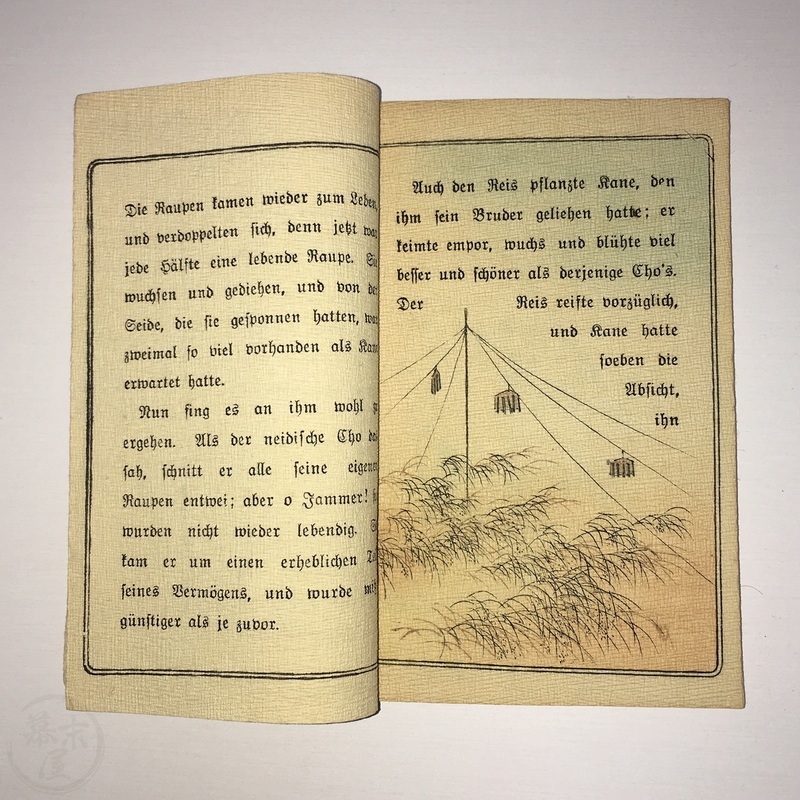 Die Raupen kamen wieder zum Leben,
und verdoppelten sich, denn jetzt war
jede Hälfte eine lebende Raupe. Sie
wuchsen und gediehen, und von der
Seide, die sie gesponnen hatten, war
zweimal so viel vorhanden als Kane
erwartet hatte.
Nun fing es an ihm wohl
ergehen. Als der neidische Cho das
sah, schnitt er alle seine eigenen
Raupen entwei; aber o Jammer!
wurden nicht wieder lebendig.
kam er um einen erheblichen
seines Vermögens, und wurde
günstiger als je zuvor.
Auch den Reis pflanzte Kane, den
ihm sein Bruder geliehen hatte; er
keimte empor, wuchs und blühte viel
besser und schöner als derjenige Cho's.
Der Reis reifte vorzüglich,
und Kane hatte
soeben die
Absicht,
ihn
幕末屋